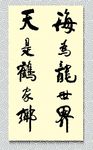 海為龍世界
天是鶴家鄉